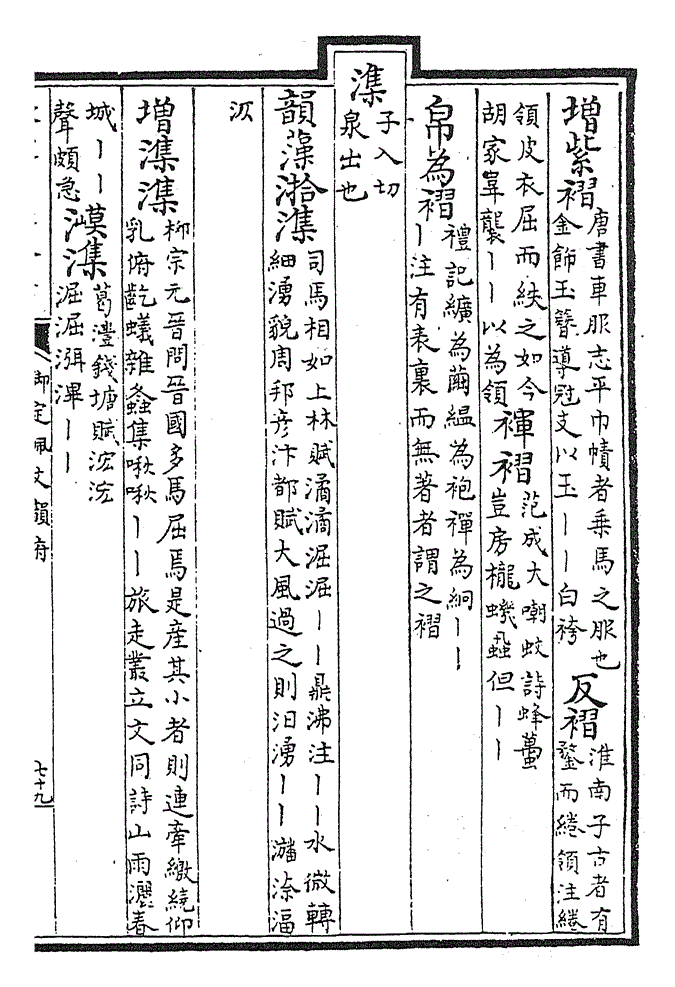 增紫褶
唐書車服志平巾幘者乗馬之服也
金飾玉簪導冠支以玉丨丨白袴
反褶
淮南子古者有
鍪而綣領注綣
領皮衣屈而紩之如今
胡家韋襲丨丨以為領
襌褶
范成大嘲蚊詩蜂蠆
豈房櫳蟣蝨但丨丨
帛為褶
禮記纊為繭緼為袍襌為絅丨丨
丨注有表裏而無著者謂之褶
潗
子入切
泉出也
韻藻湁潗
司馬相如上林賦潏潏淈淈丨丨鼎沸注丨丨水微轉
細湧貌周邦彥汴都賦大風過之則汩湧丨丨湢
增潗潗
柳宗元晉問晉國多馬屈焉是産其小者則連牽繳繞仰
乳俯齕蟻雜螽集啾啾丨丨旅走叢立文同詩山雨瀝春
城丨丨
聲頗急
漠潗
葛澧錢塘賦浤浤
淈淈渾丨丨
御定佩文韻府
七十九